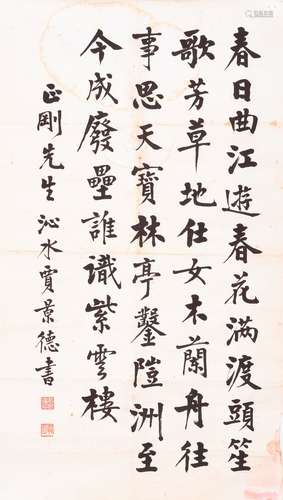 春日曲江遊春花滿渡頭笙
歌芳草地仕女木蘭舟往
事思天寶林亭鑿隑洲至
今成廢壘誰識紫雲樓
正剛先生 沁水賈景德書